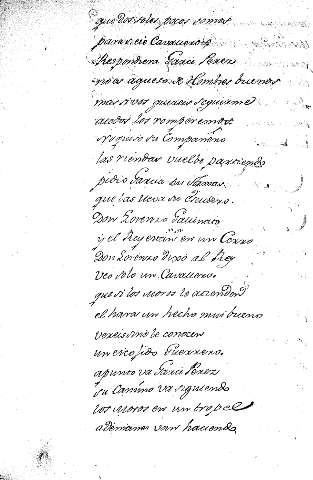 que dos solos, pocos somos
para seis Cavalleros
Respondiera Garci Perez
no es aqueso de Hombres buenos
mas si vos quereis seguirme
a todos los romperemos
no quiso su Compañero
las riendas vuelbe partiendo
pidio Garcia sus Armas
que las lleva su Escudero.
Don Lorenzo Gallinato
y el Rey en un Cerro
Don Lorenzo dixo al Rey
Veo solo un Cavallero
que si los Moros lo atienden
el hara un hecho mui bueno
vereis si no le conocen
un escojido Guerrero.
a punto va Garci Perez
su Camino va siguiendo
los Moros en un tropel
ademanes van haciendo